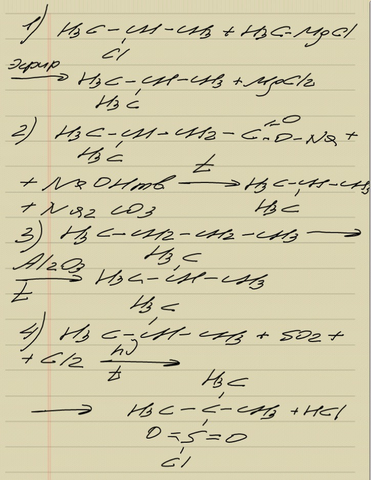 1) H3C-CH-CH3 + H3C-MgCl
Cl
эфир
→ H3C-CH-CH3 + MgCl2
H3C
2) H3C-CH-CH2-C=O
O-Na +
H3C
+ NaOHтв t → H3C-CH-CH3
H3C
+ Na2CO3
3) H3C-CH2-CH2-CH3 →
H3C
Al2O3
t → H3C-CH-CH3
H3C
4) H3C-CH-CH3 + SO2 +
+ Cl2 hν
t →
H3C
→ H3C-C-CH3 + HCl
O=S=O
Cl